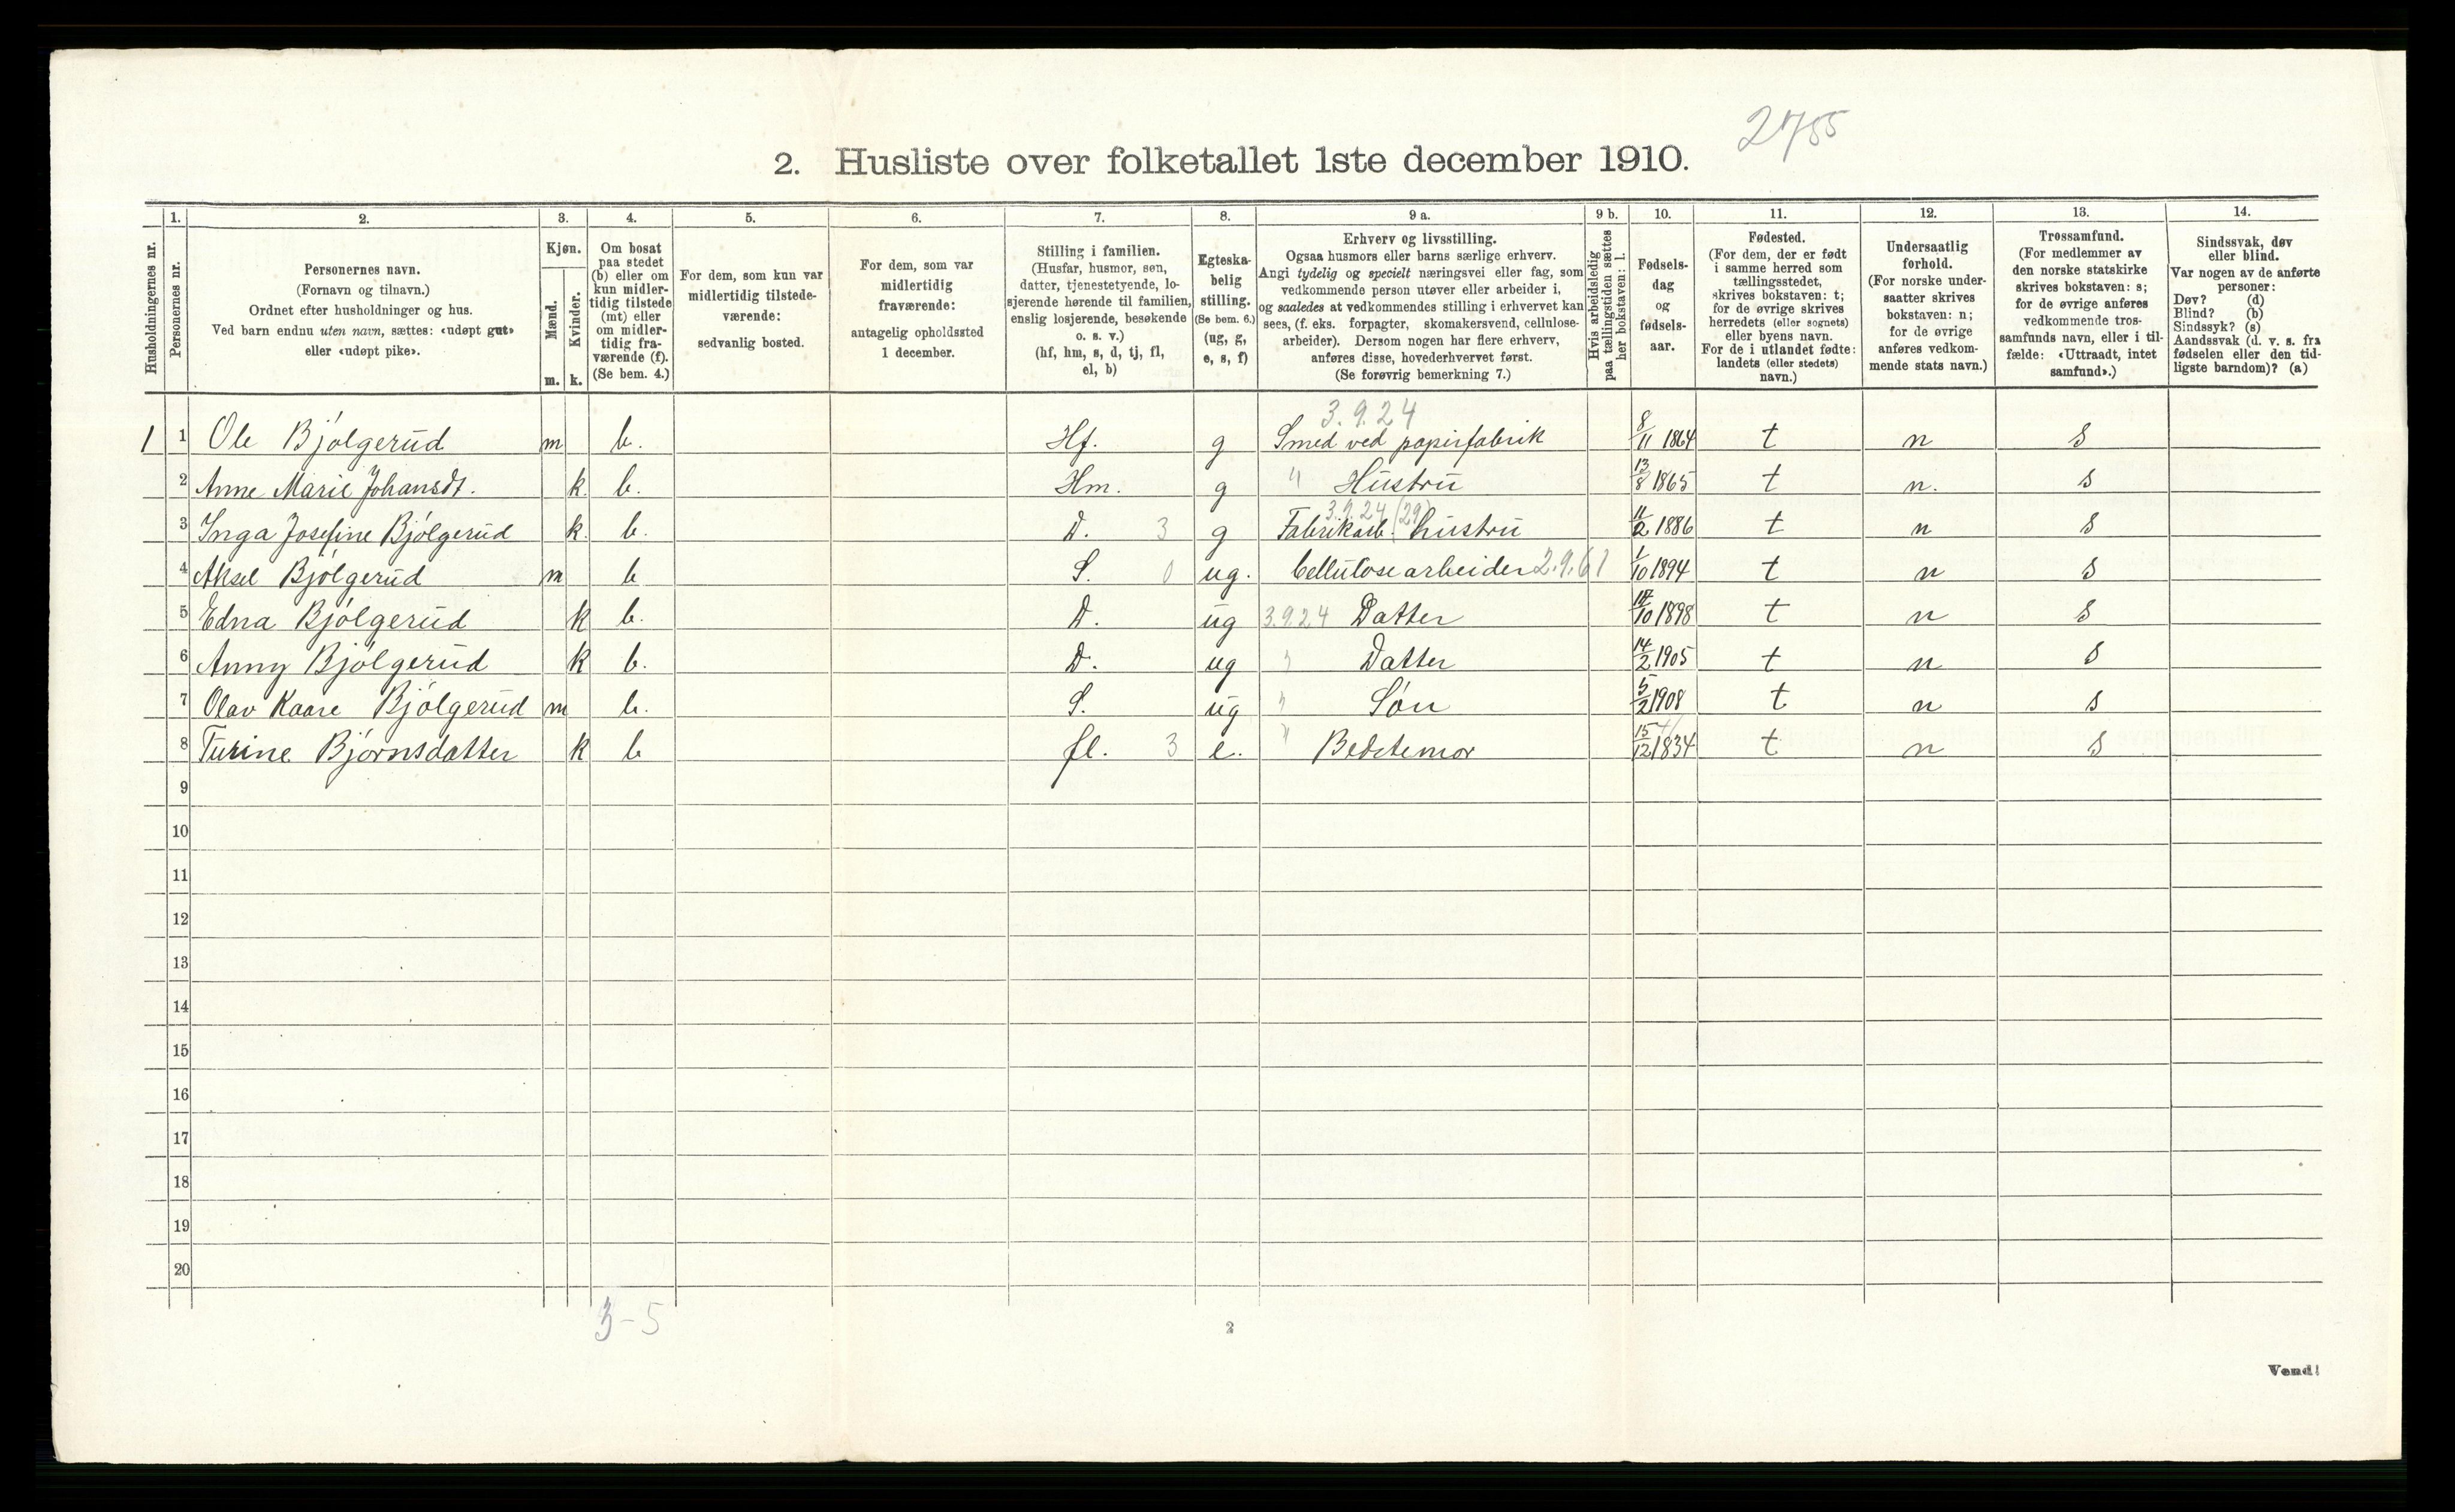 2755
2. Husliste over folketallet 1ste december 1910.
1. 2. 3. 4. 5. 6. 7. 8. 9 a. 9 b. 10. 11. 12. 13. 14.
Husholdningernes nr.
Personernes nr.
Personernes navn.
(Fornavn og tilnavn.)
Ordnet efter husholdninger og hus.
Ved barn endnu uten navn, sættes: «udøpt gut»
eller «udøpt pike».
Kjøn.
Mænd.
Kvinder.
m. k.
Om bosat
paa stedet
(b) eller om
kun midler-
tidig tilstede
(mt) eller
om midler-
tidig fra-
værende (f).
(Se bem. 4.)
For dem, som kun var
midlertidig tilstede-
værende:
sedvanlig bosted.
For dem, som var
midlertidig
fraværende:
antagelig opholdssted
1 december.
Stilling i familien.
(Husfar, husmor, søn,
datter, tjenestetyende, lo-
sjerende hørende til familien,
enslig losjerende, besøkende
o. s. v.)
(hf, hm, s, d, tj, fl,
el, b)
Egteska-
belig
stilling.
(Se bem. 6.)
(ug, g,
e, s, f)
Erhverv og livsstilling.
Ogsaa husmors eller barns særlige erhverv.
Angi tydelig og specielt næringsvei eller fag, som
vedkommende person utøver eller arbeider i,
og saaledes at vedkommendes stilling i erhvervet kan
sees, (f. eks. forpagter, skomakersvend, cellulose-
arbeider). Dersom nogen har flere erhverv,
anføres disse, hovederhvervet først.
(Se forøvrig bemerkning 7.)
Hvis arbeidsledig
paa tællingstiden sættes
her bokstaven: l.
Fødsels-
dag
og
fødsels-
aar.
Fødested.
(For dem, der er født
i samme herred som
tællingsstedet,
skrives bokstaven: t;
for de øvrige skrives
herredets (eller sognets)
eller byens navn.
For de i utlandet fødte:
landets (eller stedets)
navn.)
Undersaatlig
forhold.
(For norske under-
saatter skrives
bokstaven: n;
for de øvrige
anføres vedkom-
mende stats navn.)
Trossamfund.
(For medlemmer av
den norske statskirke
skrives bokstaven: s;
for de øvrige anføres
vedkommende tros-
samfunds navn, eller i til-
fælde: «Uttraadt, intet
samfund».)
Sindssvak, døv
eller blind.
Var nogen av de anførte
personer:
Døv? (d)
Blind? (b)
Sindssyk? (s)
Aandssvak (d. v. s. fra
fødselen eller den tid-
ligste barndom)? (a)
3.9.24
1 1 Ole Bjølgerud m b. Hf. g Smed ved papirfabrik 8/11 1864 t n s
2 Anne Marie Johansdt. k. b. Hm. g " Hustru 13/8 1865 t n. s
3.9.24 (29)
3 Inga Josefine Bjølgerud k. b. D. 3 g Fabrikarb. hustru 11/2 1886 t n s
4 Aksel Bjølgerud m b S. 0 ug. Cellulosearbeider 2.9.61 1/10 1894 t n s
5 Edna Bjølgerud k b. D. ug 3.9.24 Datter /10 1898 t n s
6 Anny Bjølgerud k b. D. ug " Datter 14/2 1905 t n s
7 Olav Kaare Bjølgerud m b. S. ug " Søn 5/2 1908 t n s
8 Turine Bjørnsdatter k b fl. 3 e. " Bedstemor 15/12 1834 t n s
9
10
11
12
13
14
15
16
17
18
19
20
3-5
2
Vend!